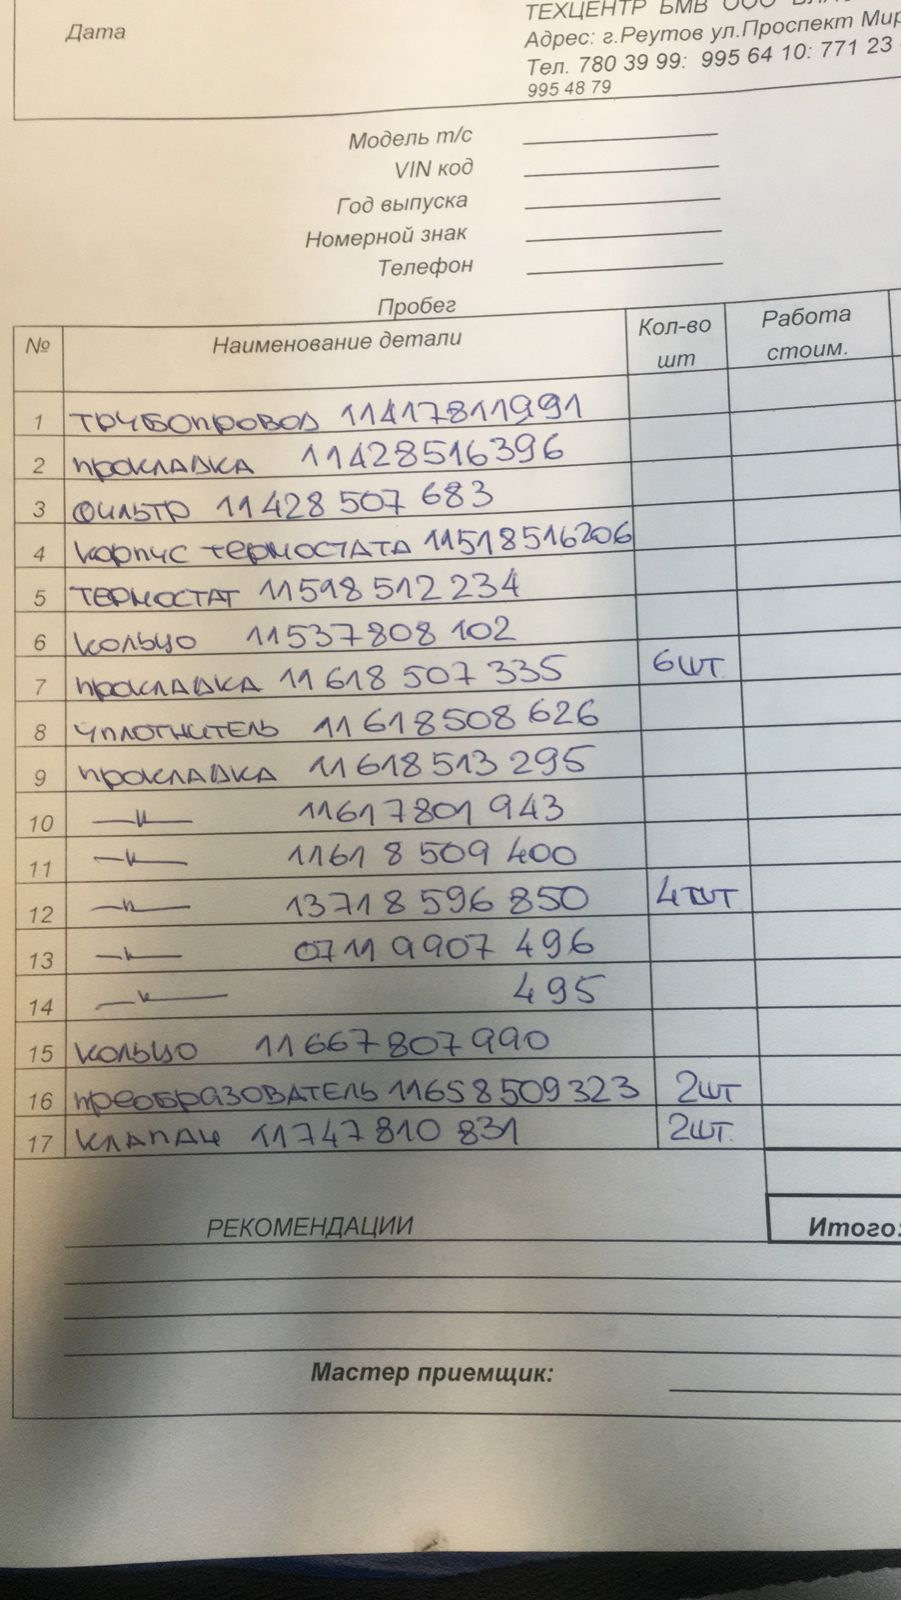 Дата
ТЕХЦЕНТР БМВ ООО
Адрес: г.Реутов ул.Проспект Мир
Тел. 780 39 99: 995 64 10: 771 23
995 48 79
Модель т/с
VIN код
Год выпуска
Номерной знак
Телефон
Пробег
№ Наименование детали Кол-во шт Работа стоим.
1 трубопровод 11417811991
2 прокладка 11428516396
3 фильтр 11 428 507 683
4 корпус термостата 11518516206
5 термостат 11518 512 234
6 кольцо 11537808 102
7 прокладка 11 618 507 335 6шт.
8 уплотнитель 11 618508 626
9 прокладка 11 618513 295
10 —"— 11617801 943
11 —"— 11618 509 400
12 —"— 13718 596 850 4шт
13 —"— 07119907 496
14 —"— 495
15 кольцо 11 667807990
16 преобразователь 11658509323 2шт
17 клапан 11747810 831 2шт.
РЕКОМЕНДАЦИИ
Итого:
Мастер приемщик: